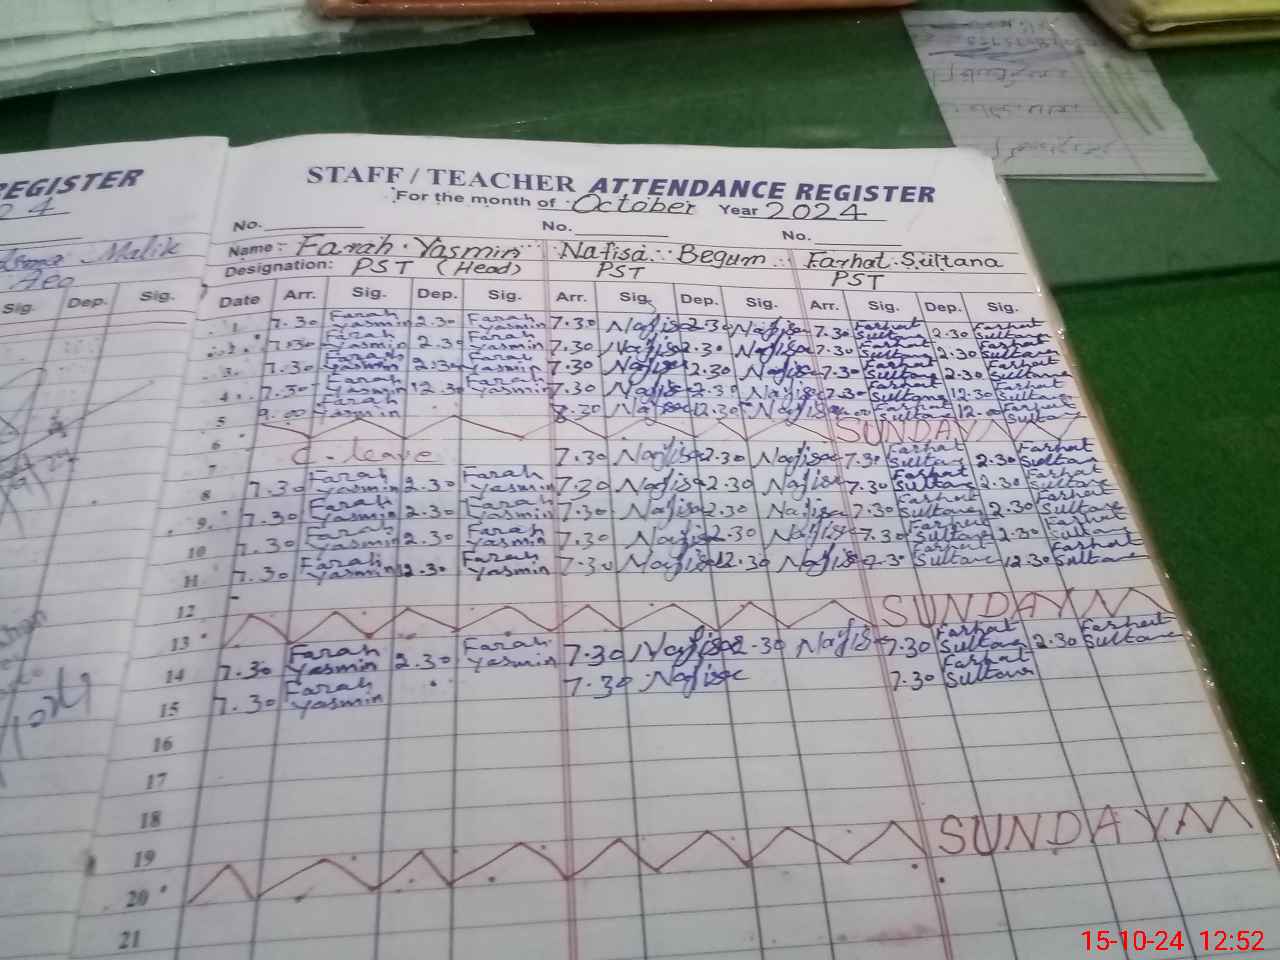 REGISTER
24
Malik
Sig. Dep. Sig.
STAFF / TEACHER ATTENDANCE REGISTER
For the month of October Year 2024
No. No. No.
Name: Farah Yasmin Nafisa Begum Farhat Sultana
Designation: PST (Head) PST PST
Date Arr. Sig. Dep. Sig. Arr. Sig. Dep. Sig. Arr. Sig. Dep. Sig.
1 7.30 Farah Yasmin 2.30 Farah Yasmin 7.30 Nafisa 2.30 Nafisa 7.30 Farhat Sultana 2.30 Farhat Sultana
2 7.30 Farah Yasmin 2.30 Farah Yasmin 7.30 Nafisa 2.30 Nafisa 7.30 Farhat Sultana 2.30 Farhat Sultana
3 7.30 Farah Yasmin 2.30 Farah Yasmin 7.30 Nafisa 2.30 Nafisa 7.30 Farhat Sultana 2.30 Farhat Sultana
4 7.30 Farah Yasmin 12.30 Farah Yasmin 7.30 Nafisa 12.30 Nafisa 7.30 Farhat Sultana 12.30 Farhat Sultana
5 9.00 Farah Yasmin 8.30 Nafisa 12.30 Nafisa Farhat Sultana 12.00 Farhat Sultana
6 SUNDAY
7 C. leave 7.30 Nafisa 2.30 Nafisa 7.30 Farhat Sultana 2.30 Farhat Sultana
8 7.30 Farah Yasmin 2.30 Farah Yasmin 7.30 Nafisa 2.30 Nafisa 7.30 Farhat Sultana 2.30 Farhat Sultana
9 7.30 Farah Yasmin 2.30 Farah Yasmin 7.30 Nafisa 2.30 Nafisa 7.30 Farhat Sultana 2.30 Farhat Sultana
10 7.30 Farah Yasmin 2.30 Farah Yasmin 7.30 Nafisa 2.30 Nafisa 7.30 Farhat Sultana 2.30 Farhat Sultana
11 7.30 Farah Yasmin 12.30 Farah Yasmin 7.30 Nafisa 12.30 Nafisa 7.30 Farhat Sultana 12.30 Farhat Sultana
12
13 SUNDAY
14 7.30 Farah Yasmin 2.30 Farah Yasmin 7.30 Nafisa 2.30 Nafisa 7.30 Farhat Sultana 2.30 Farhat Sultana
15 7.30 Farah Yasmin 7.30 Nafisa 7.30 Farhat Sultana
16
17
18
19
20 SUNDAY
21
15-10-24 12:52